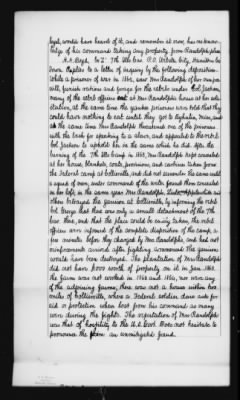 loyal, would have heard of it, and remember it now, has no know-
ledge of his command taking any property from Randolph place
H.A. Lloyd, 7th Ills Cav. P.O. City,
Iowa. Replies to a letter of inquiry by the following deposition.
While a prisoner of war in 1862, saw Mrs Randolph of her own free
will, furnish rations and forage for the rebels under Col Jackson,
many of the rebel officers eat at Mrs Randolph's house at her soli-
citation, at the same time the yankee prisoners were told that they
could have nothing to eat until they got to Ripley, Miss, and
at the same time Mrs Randolph threatened one of the prisoners
with the knife for speaking to a slave, and appealed to the reb.
Col Jackson to uphold her in the same which he did. After the
burning of the 7th Ills camp in 1863, Mrs Randolph kept concealed
in her house, blankets, coats, provisions, and carbines taken from
the Federal camp at Lolliesville, and did not surrender the same until
a squad of men, under command of the writer found them concealed
in her loft, in the same year Mrs Randolph, and
others betrayed the garrison at Lolliesville by informing the rebel
Col that there was only a small detachment of the 7th
there, and that the place could be easily taken, the rebel
officer were informed of the complete disposition of the camp, a
few minutes before they charged by Mrs Randolph, and had not
reinforcements arrived after fighting commenced the garrison
would have been destroyed. The plantation of Mrs Randolph
did not have $500 worth of property on it in Jan. 1863.
the farm was not worked in 1862 and 1863, nor were any
of the adjoining farms, there was not a house within two
miles of Lolliesville, where a Federal soldier dare ask for
aid or protection when lost from his command as many
were during the fights. The reputation of Mrs Randolph
was that of hostility to the U.S. Govt. Does not hesitate to
pronounce the claim an unmitigated fraud.